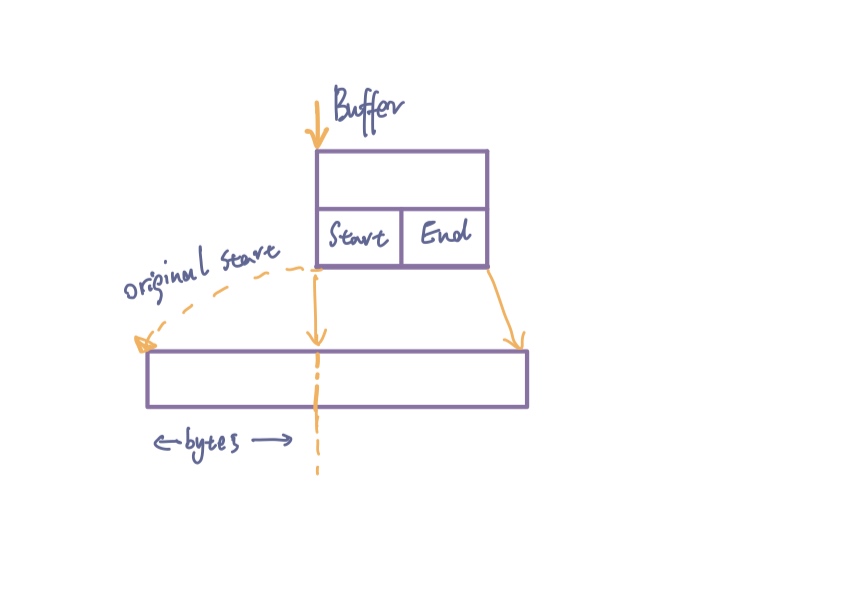 Buffer
Start
End
original start
bytes